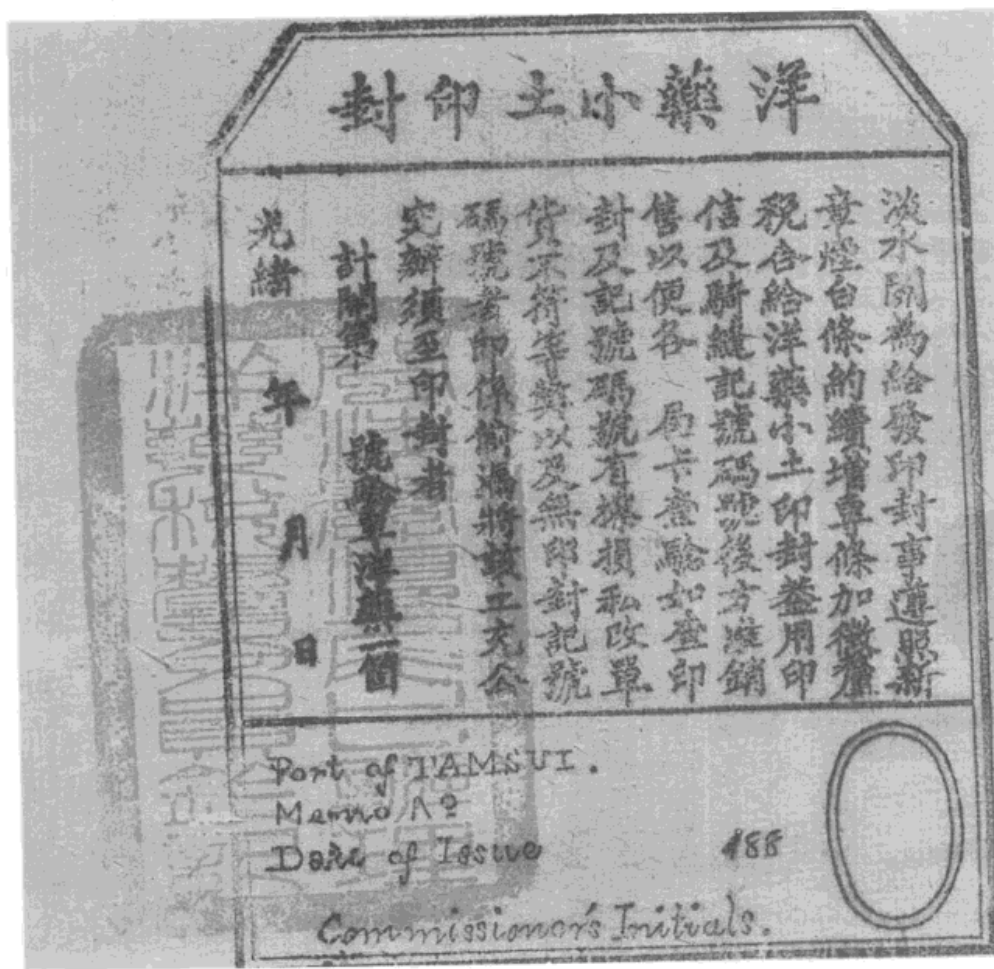 洋藥小土印封
淡水關為給發印封事遵照新
章煙台條約續增專條加徵釐
稅合給洋藥小土印封蓋用印
信及騎縫記號碼號後方准銷
售以便各 局卡查驗如查印
封及記號碼號有擦損私改單
貨不符等獘以及無印封記號
碼號者即係偷漏將該土充公
究辦須至印封者
計開第 號 洋藥一個
光緒 年 月 日
Port of TAMSUI.
Memo No
Date of Issue 188
Commissioner's Initials.